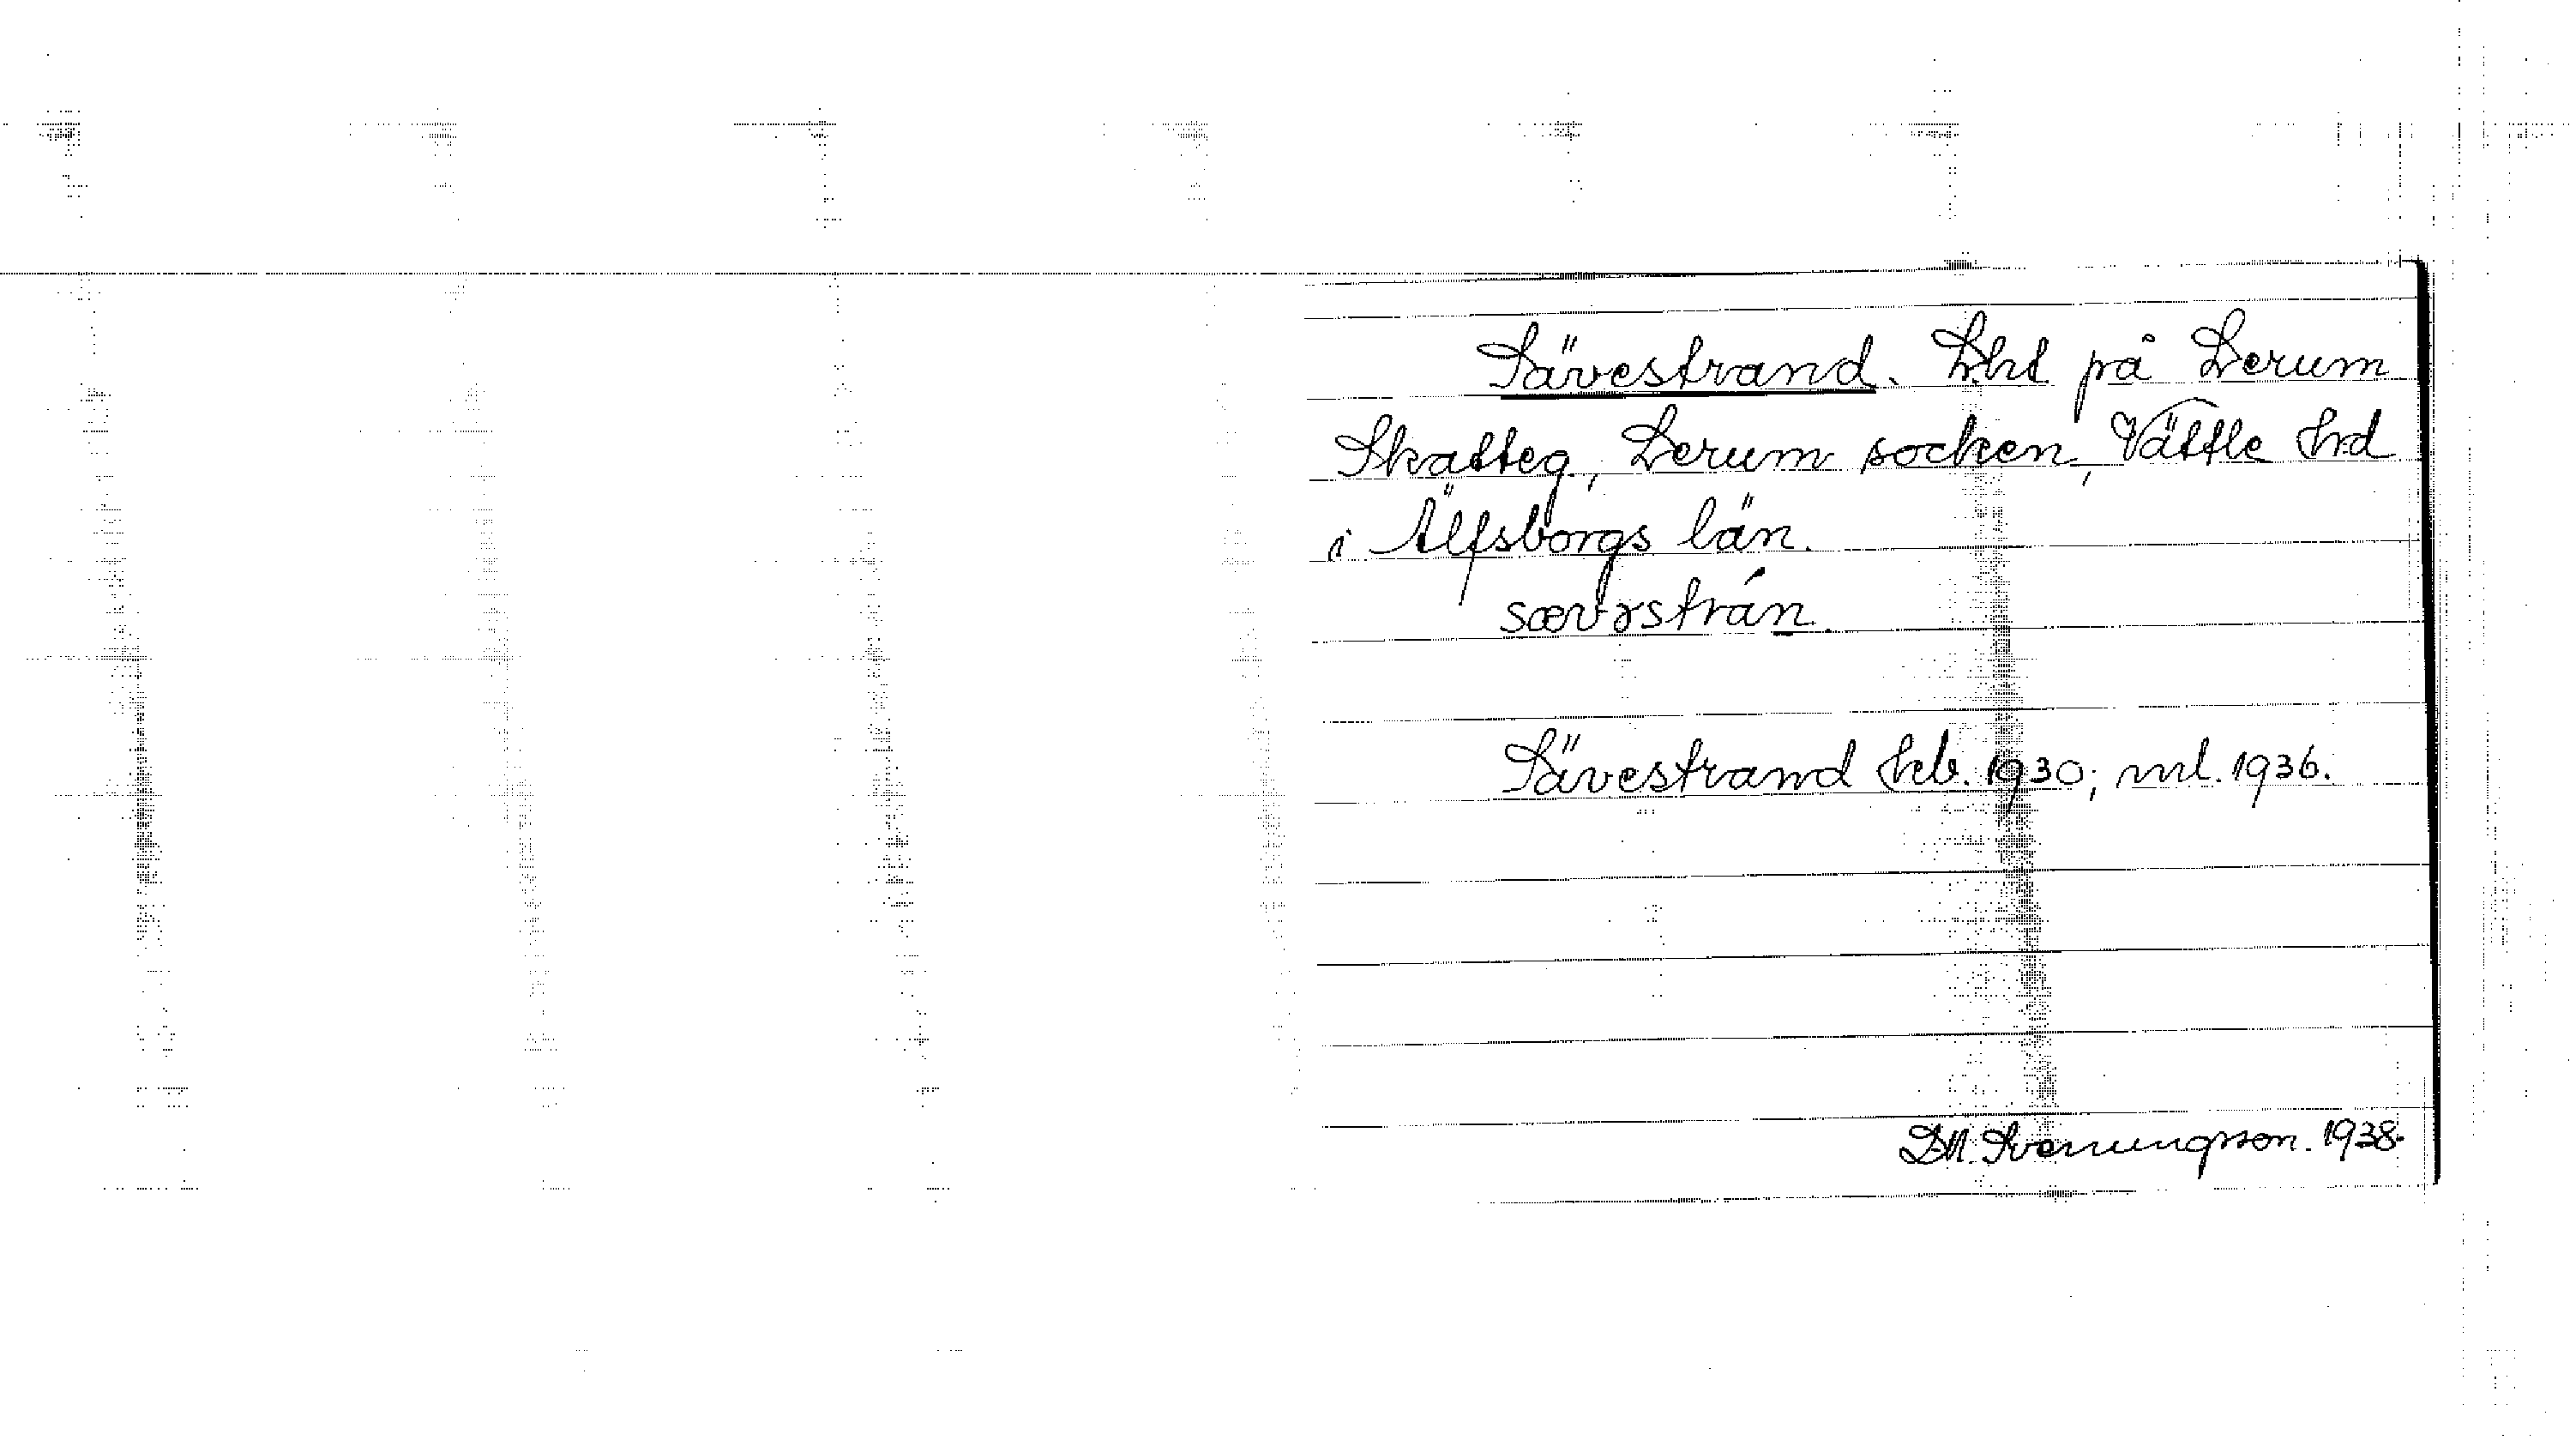 Sävestrand. Lht på Lerum
Skatteg, Lerum socken, Vättle hd
i Älfsborgs län.
sævəstrán.
Sävestrand hb. 1930; ml. 1936.
D.N. Svenungsson. 1938.